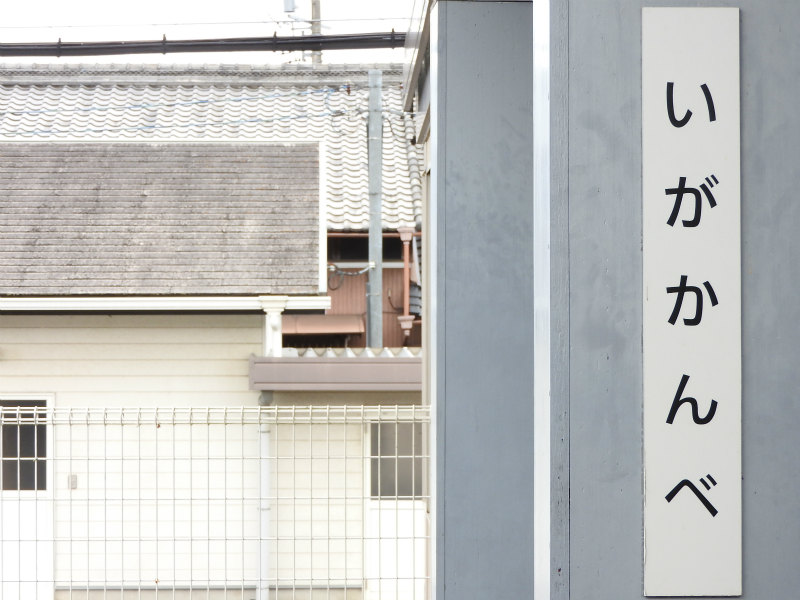 いがかんべ